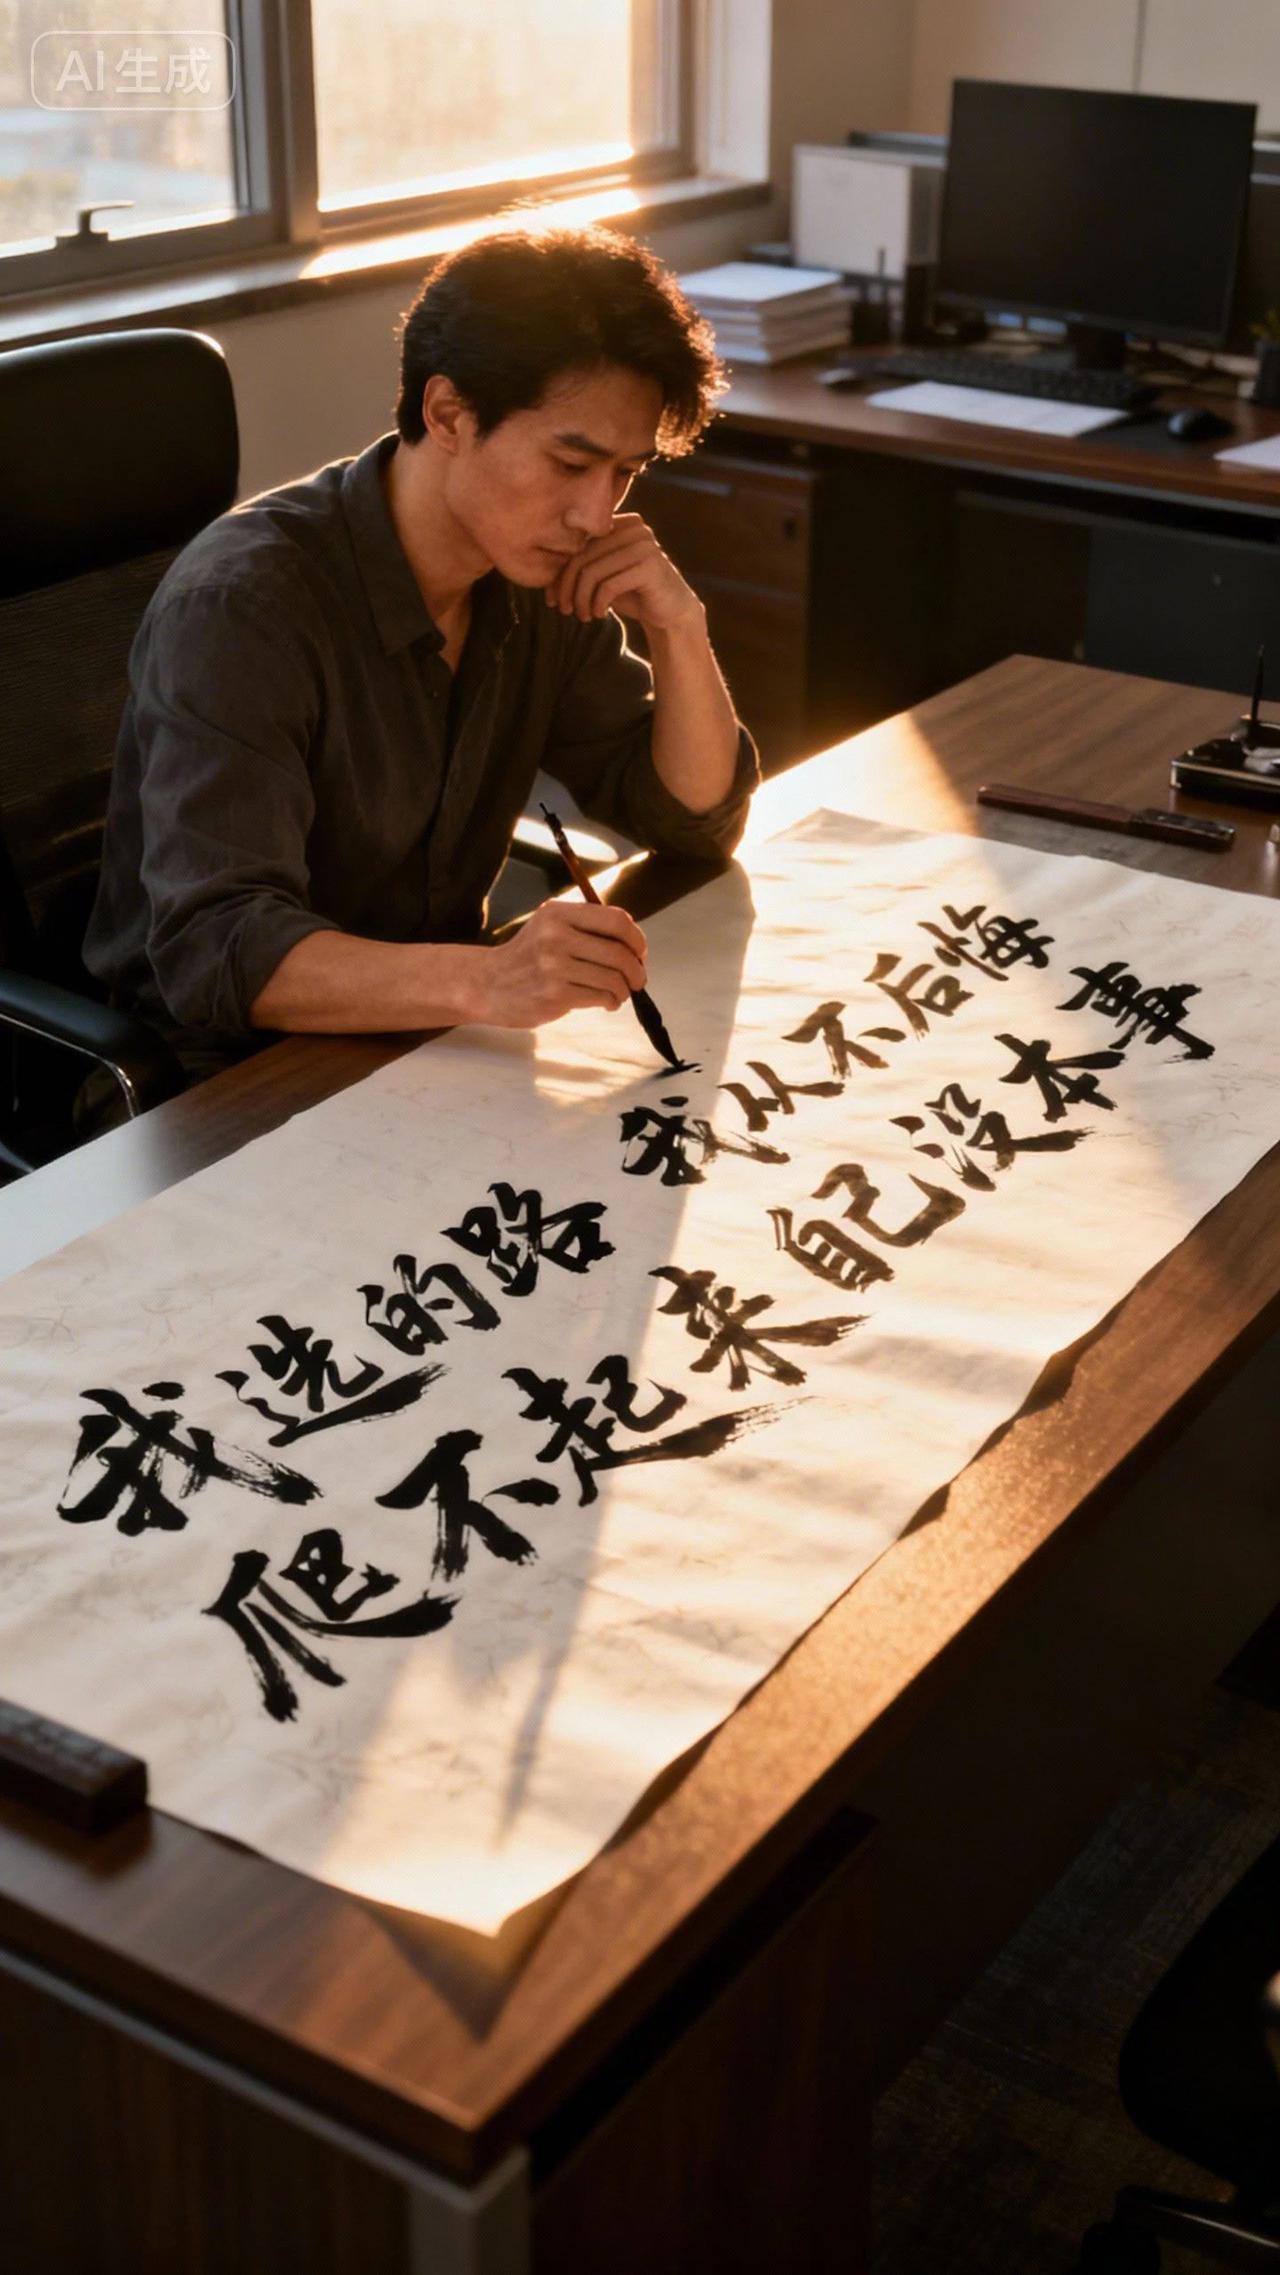 AI生成
我选的路 我从不后悔
爬不起来自己没本事